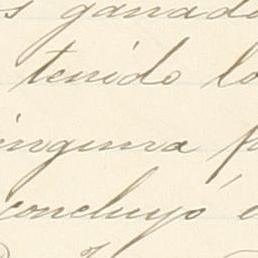 s ganado
tenido lo
inguna f
concluyó e